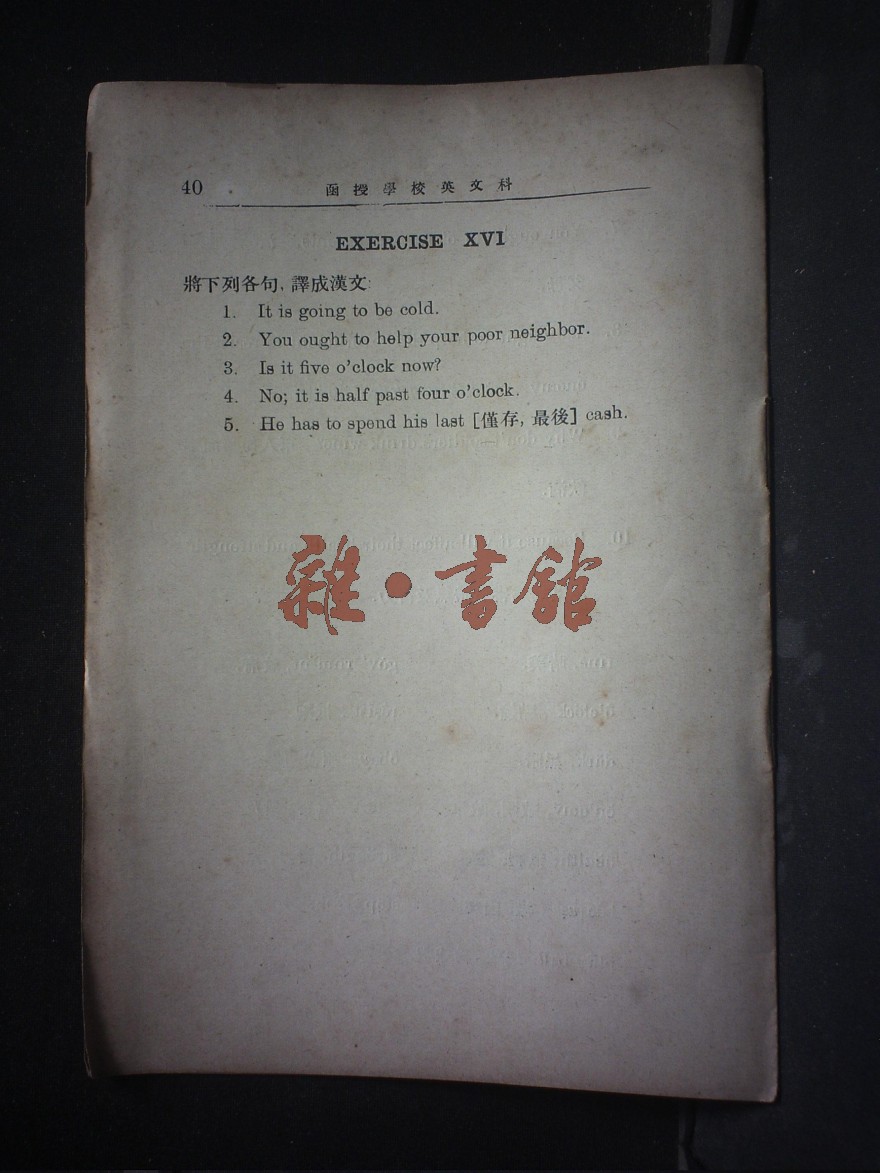 40 函授學校英文科
EXERCISE XVI
將下列各句, 譯成漢文:
1. It is going to be cold.
2. You ought to help your poor neighbor.
3. Is it five o'clock now?
4. No; it is half past four o'clock.
5. He has to spend his last [僅存, 最後] cash.
雜·書館